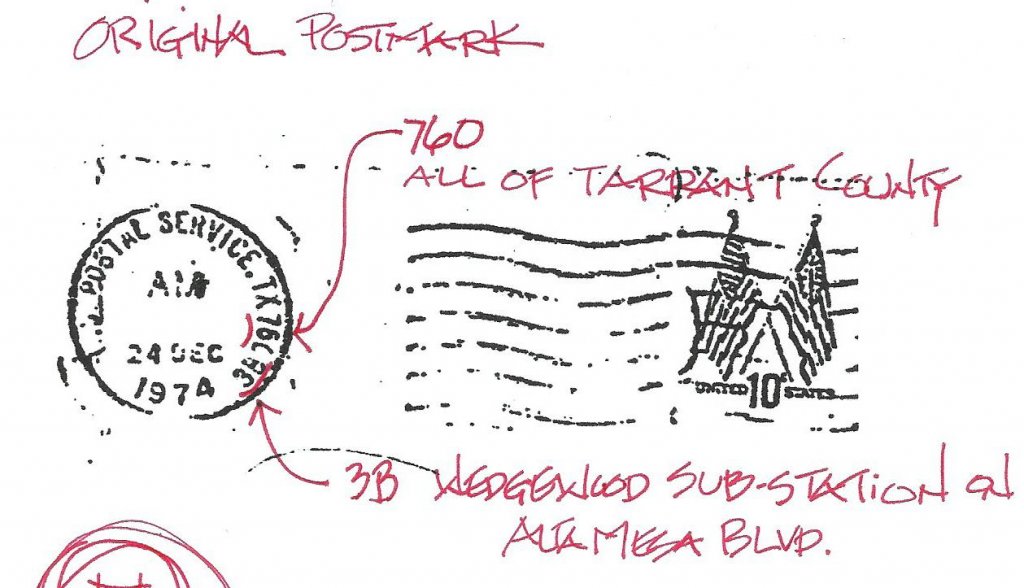 ORIGINAL POSTMARK
760
ALL OF TARRANT COUNTY
POSTAL SERVICE, TX 760
AM
24 DEC
1974
3B
UNITED 10 STATES
3B WEDGEWOOD SUB-STATION ON
ALTAMESA BLVD.